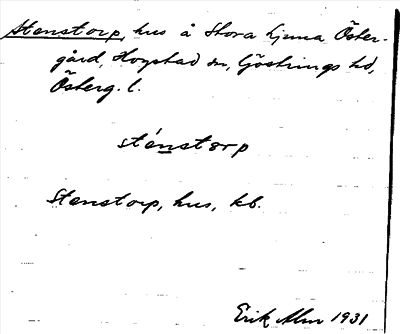 Stenstorp, hus å Stora Ljuna Öster-
gård, Hogstad sn, Göstrings hd,
Österg. l.
sténstorp
Stenstorp, hus, kb.
Erik Alm 1931